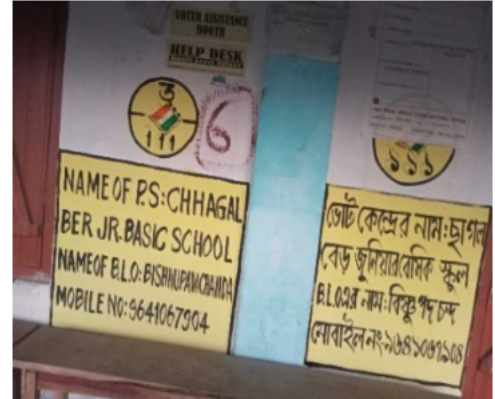 VOTER ASSISTANCE
BOOTH
HELP DESK
উ
111
6
NAME OF P.S: CHHAGAL
BER JR. BASIC SCHOOL
NAME OF B.L.O: BISHNUPADA CHANDA
MOBILE NO: 9641067904
১১১
ভোট কেন্দ্রের নাম: ছাগল
বেড় জুনিয়ার বেসিক স্কুল
B.L.O এর নাম: বিষ্ণু পদ চন্দ
মোবাইল নং ৯৬৪১০৬৭৯০৪